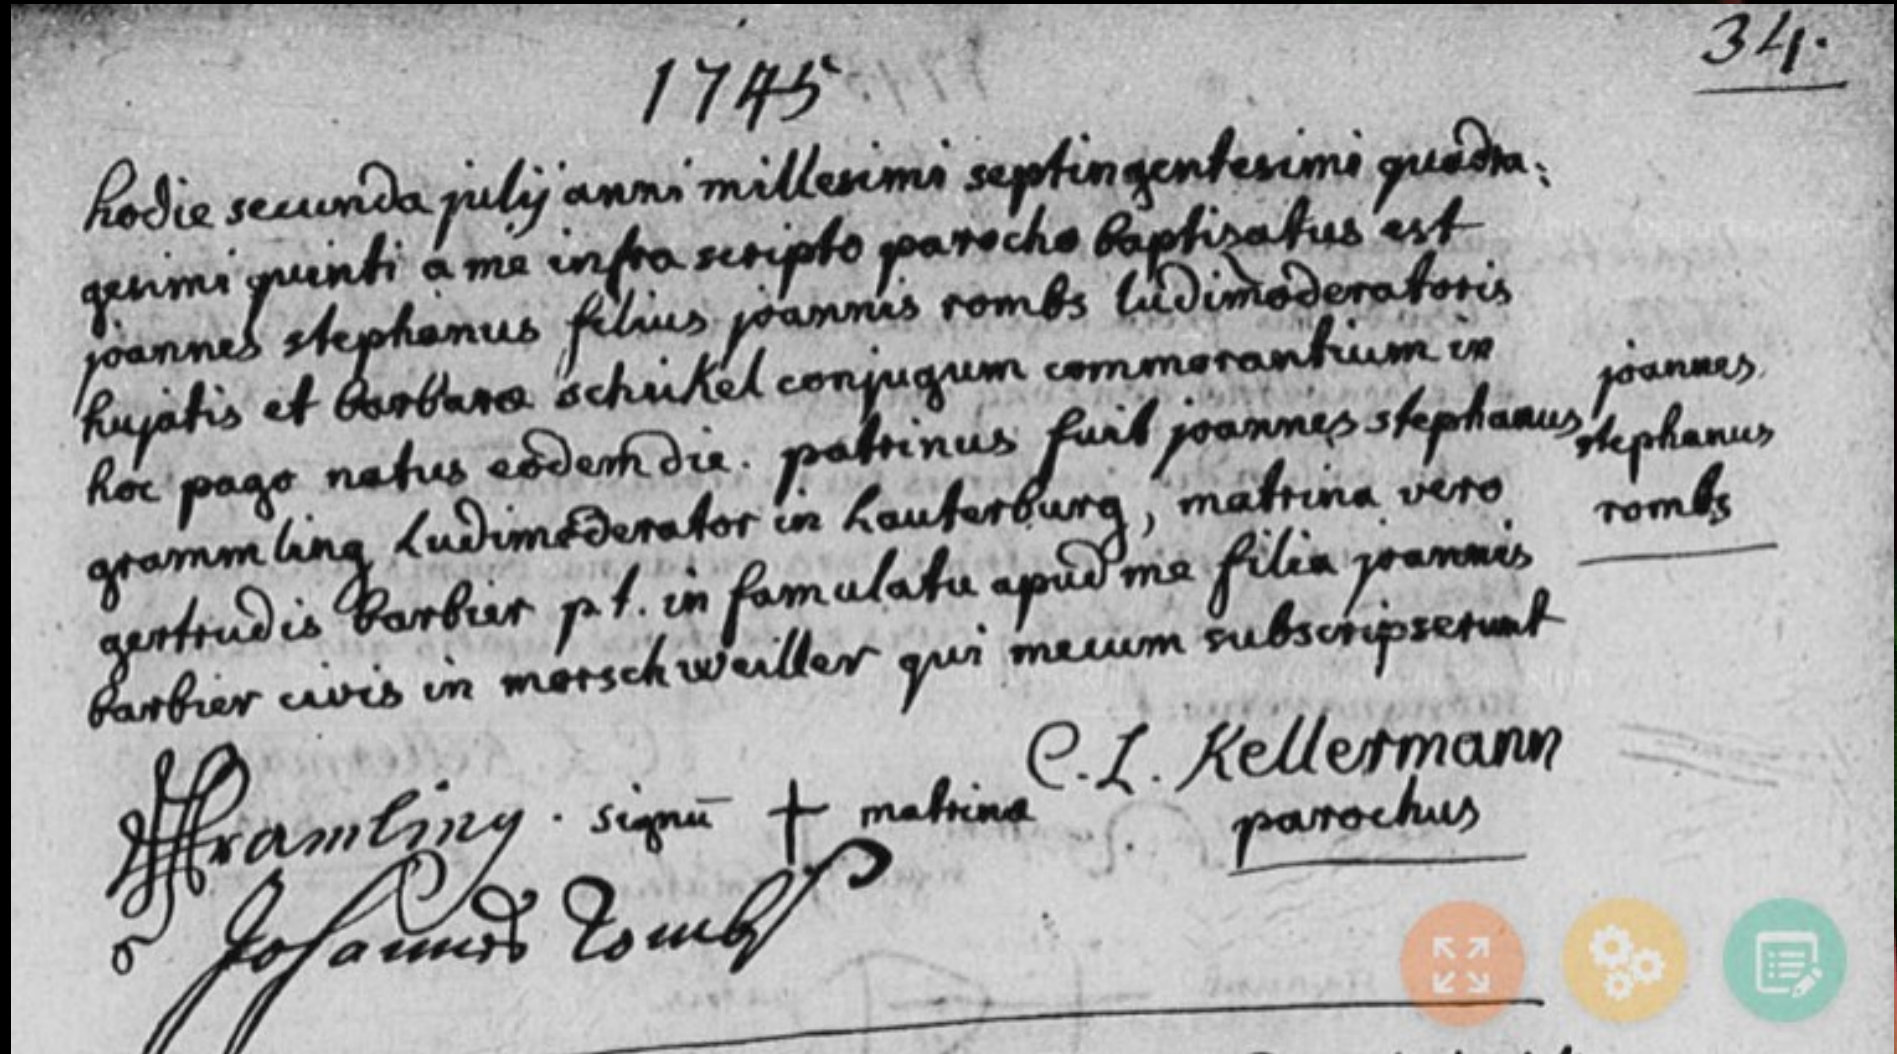 34.
1745
hodie secunda julij anni millesimi septingentesimi quadra:
gesimi quinti a me infra scripto parocho baptisatus est
joannes stephanus filius joannis rombs ludimoderatoris
hujatis et barbara schikel conjugum commorantium in
hoc pago natus eodem die. patrinus fuit joannes stephanus
grammling ludimoderator in Lauterburg, matrina vero
gertrudis barbier p.t. in famulatu apud me filia joannis
barbier civis in morschweiller qui mecum subscripserunt
joannes
stephanus
rombs
C. L. Kellermann
parochus
Gramling . signū + matrina
Johannes Rombs